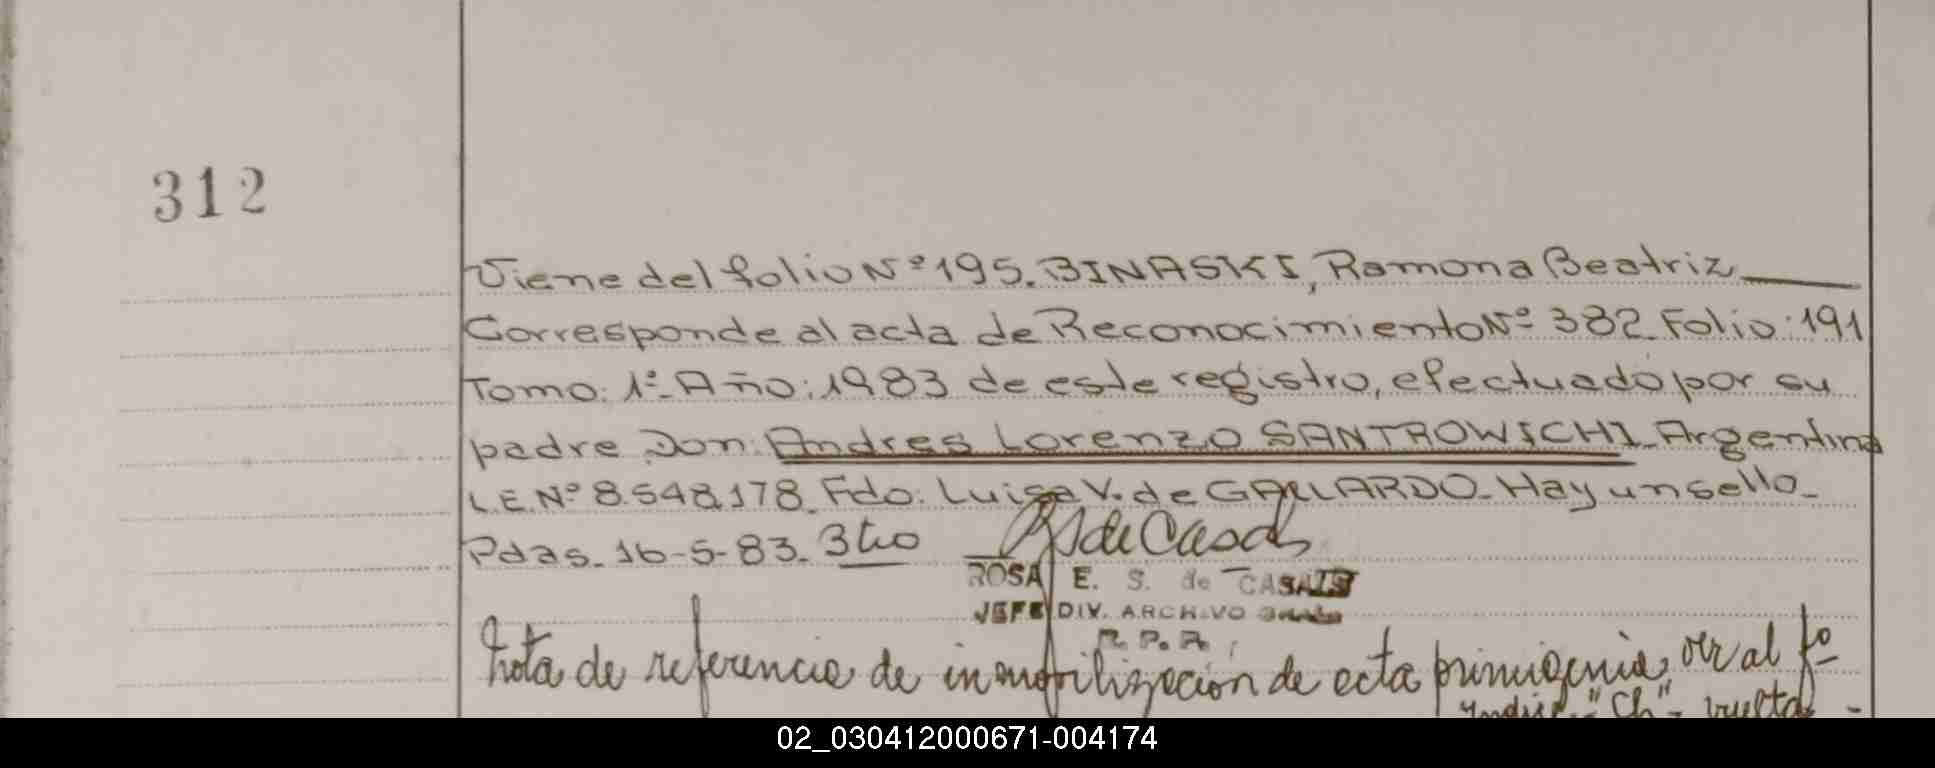 312
Viene del folio Nº 195. BINASKI, Ramona Beatriz
Corresponde al acta de Reconocimiento Nº 382. Folio: 191
Tomo: 1º- Año: 1983 de este registro, efectuado por su
padre Don: Andres Lorenzo SANTROWSCHI. Argentino
L.E. Nº 8.548.178. Fdo: Luisa V. de GALLARDO. Hay un sello.
Pdas. 16-5-83.
de Casals
ROSA E. S. de CASALS
JEFE DIV. ARCHIVO
R. P. P.
Nota de referencia de inmovilización de acta primigenia, ver al fº
Indice "Ch" - vuelta -
02_030412000671-004174